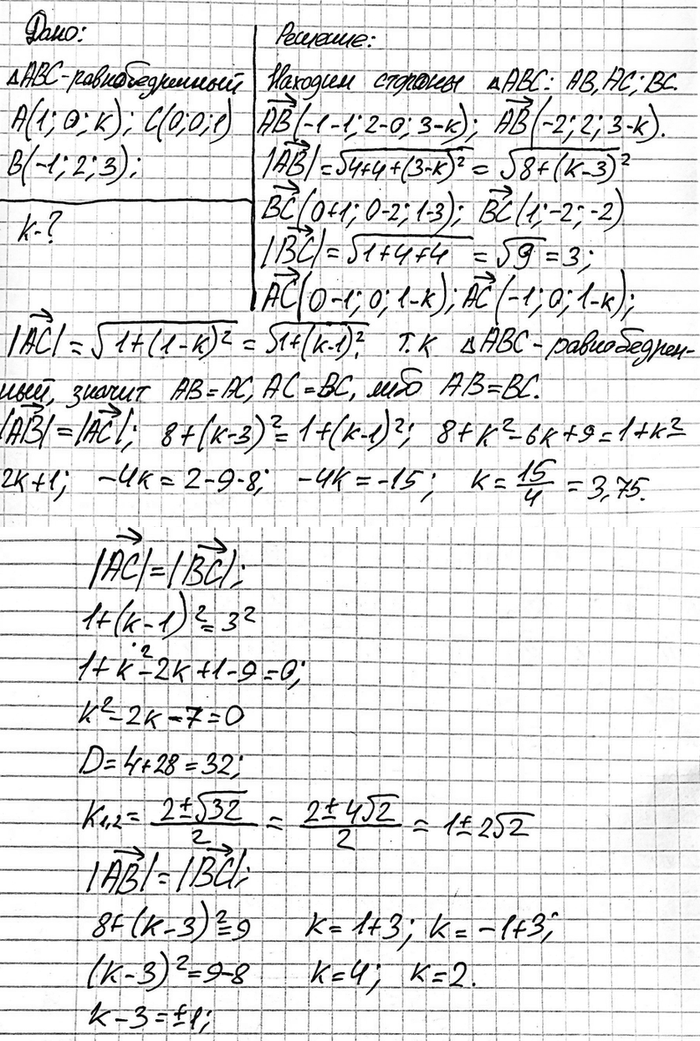 Дано:
ΔABC-равнобедренный
A(1; 0; к); C(0; 0; 1)
B(-1; 2; 3);
к-?
Решение:
Находим стороны ΔABC: AB, AC; BC.
→AB(-1-1; 2-0; 3-к); →AB(-2; 2; 3-к).
|→AB| = √(4+4+(3-к)²) = √(8+(к-3)²)
→BC(0+1; 0-2; 1-3); →BC(1; -2; -2)
|→BC| = √(1+4+4) = √9 = 3;
→AC(0-1; 0; 1-к); →AC(-1; 0; 1-к);
|→AC| = √(1+(1-к)²) = √(1+(к-1)²). т.к ΔABC-равнобедрен-
ный, значит AB=AC, AC=BC, либо AB=BC.
|→AB|=|→AC|; 8+(к-3)²=1+(к-1)²; 8+к²-6к+9=1+к²-
2к+1; -4к=2-9-8; -4к=-15; к=15/4=3,75.
|→AC|=|→BC|;
1+(к-1)²=3²
1+к²-2к+1-9=0;
к²-2к-7=0
D=4+28=32;
к₁,₂ = (2±√32)/2 = (2±4√2)/2 = 1±2√2
|→AB|=|→BC|;
8+(к-3)²=9 к=1+3; к=-1+3;
(к-3)²=9-8 к=4; к=2.
к-3=±1;